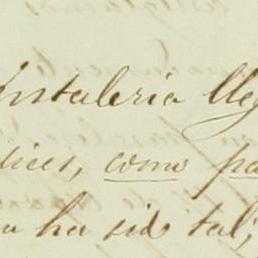 instaleria lleg
dices, como pa
ha sido tal;